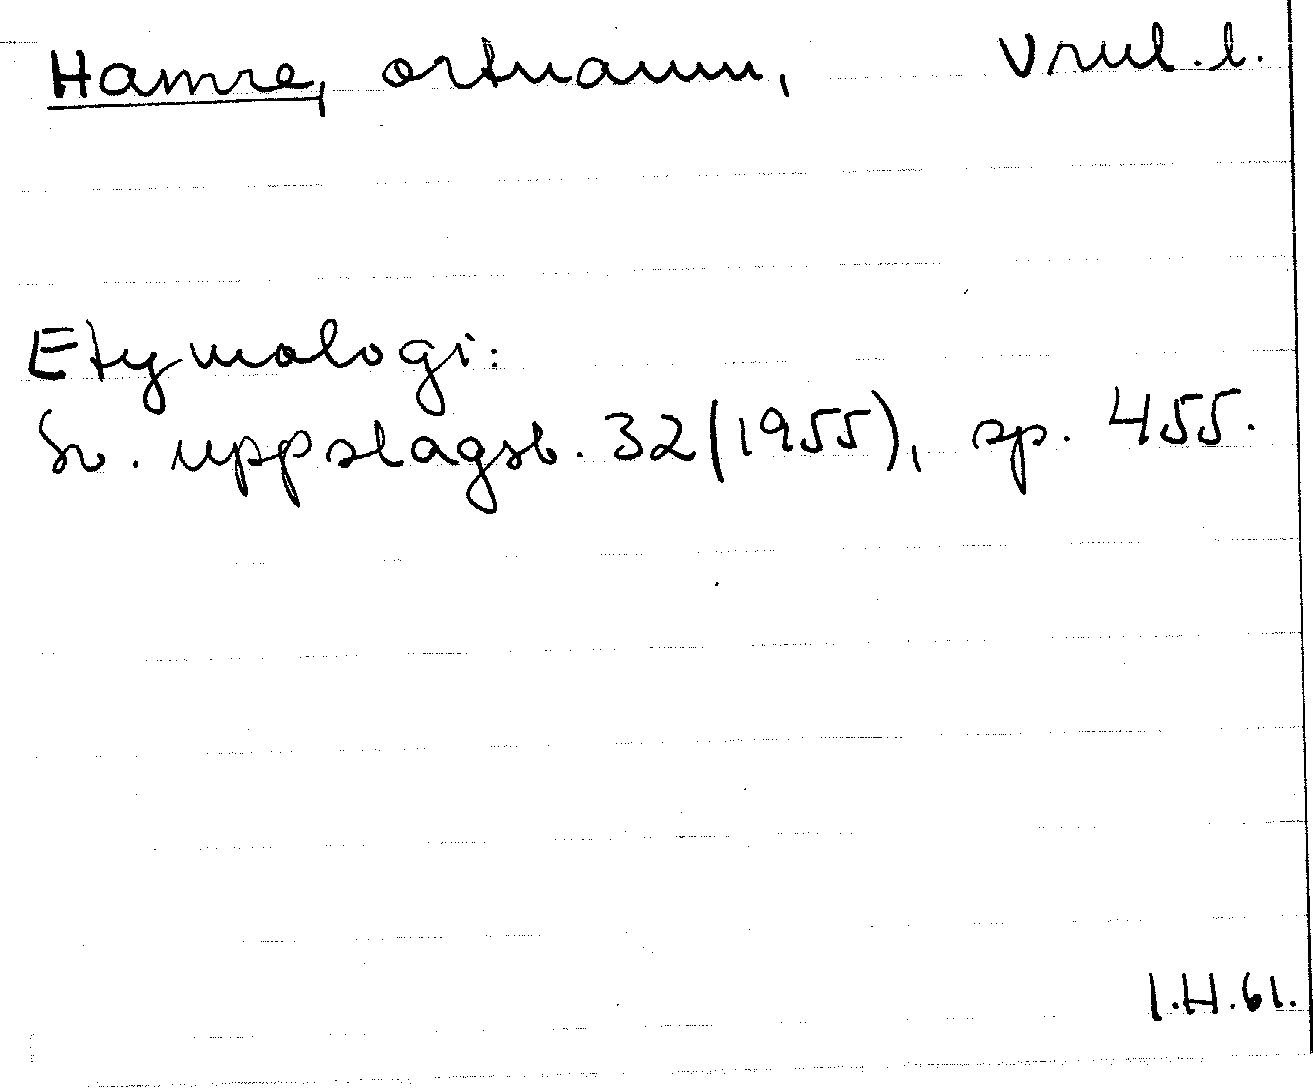 Hamre, ortnamn, Vrml. l.
Etymologi:
Sv. uppslagsb. 32 (1955), sp. 455.
I.H.61.